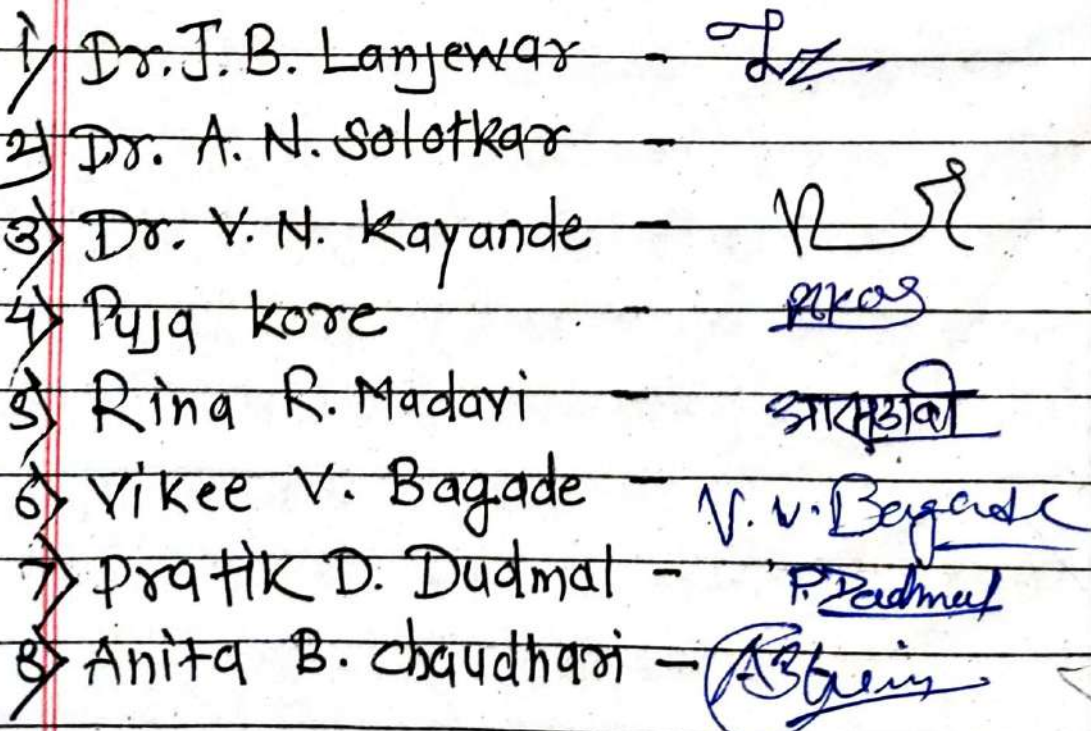 1) Dr. J. B. Lanjewar -
2) Dr. A. N. Solotkar -
3) Dr. V. N. Kayande -
4) Puja kore -
5) Rina R. Madavi -
6) Vikee V. Bagade - V. V. Bagade
7) Pratik D. Dudmal - P. Dudmal
8) Anita B. Chaudhari -